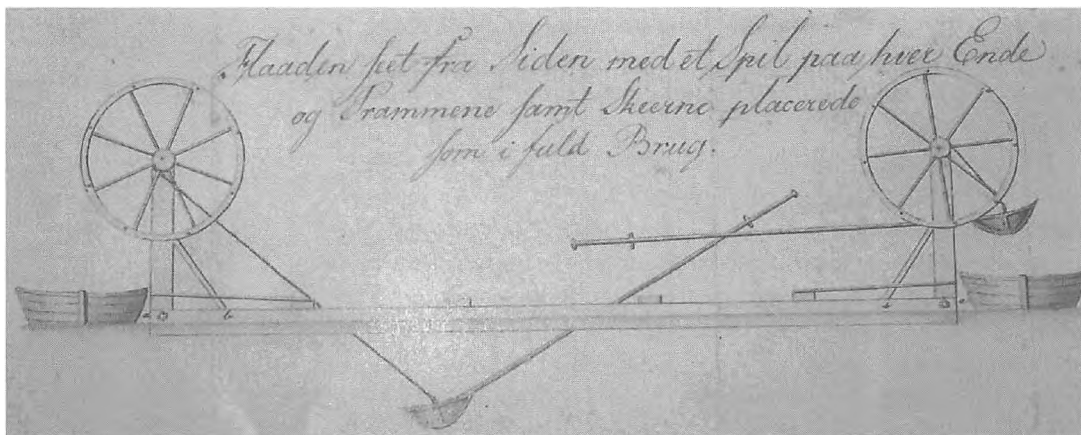 Flaaden seet fra Siden med et Spil paa hver Ende
og Prammene samt Skeerne placerede
som i fuld Brug.